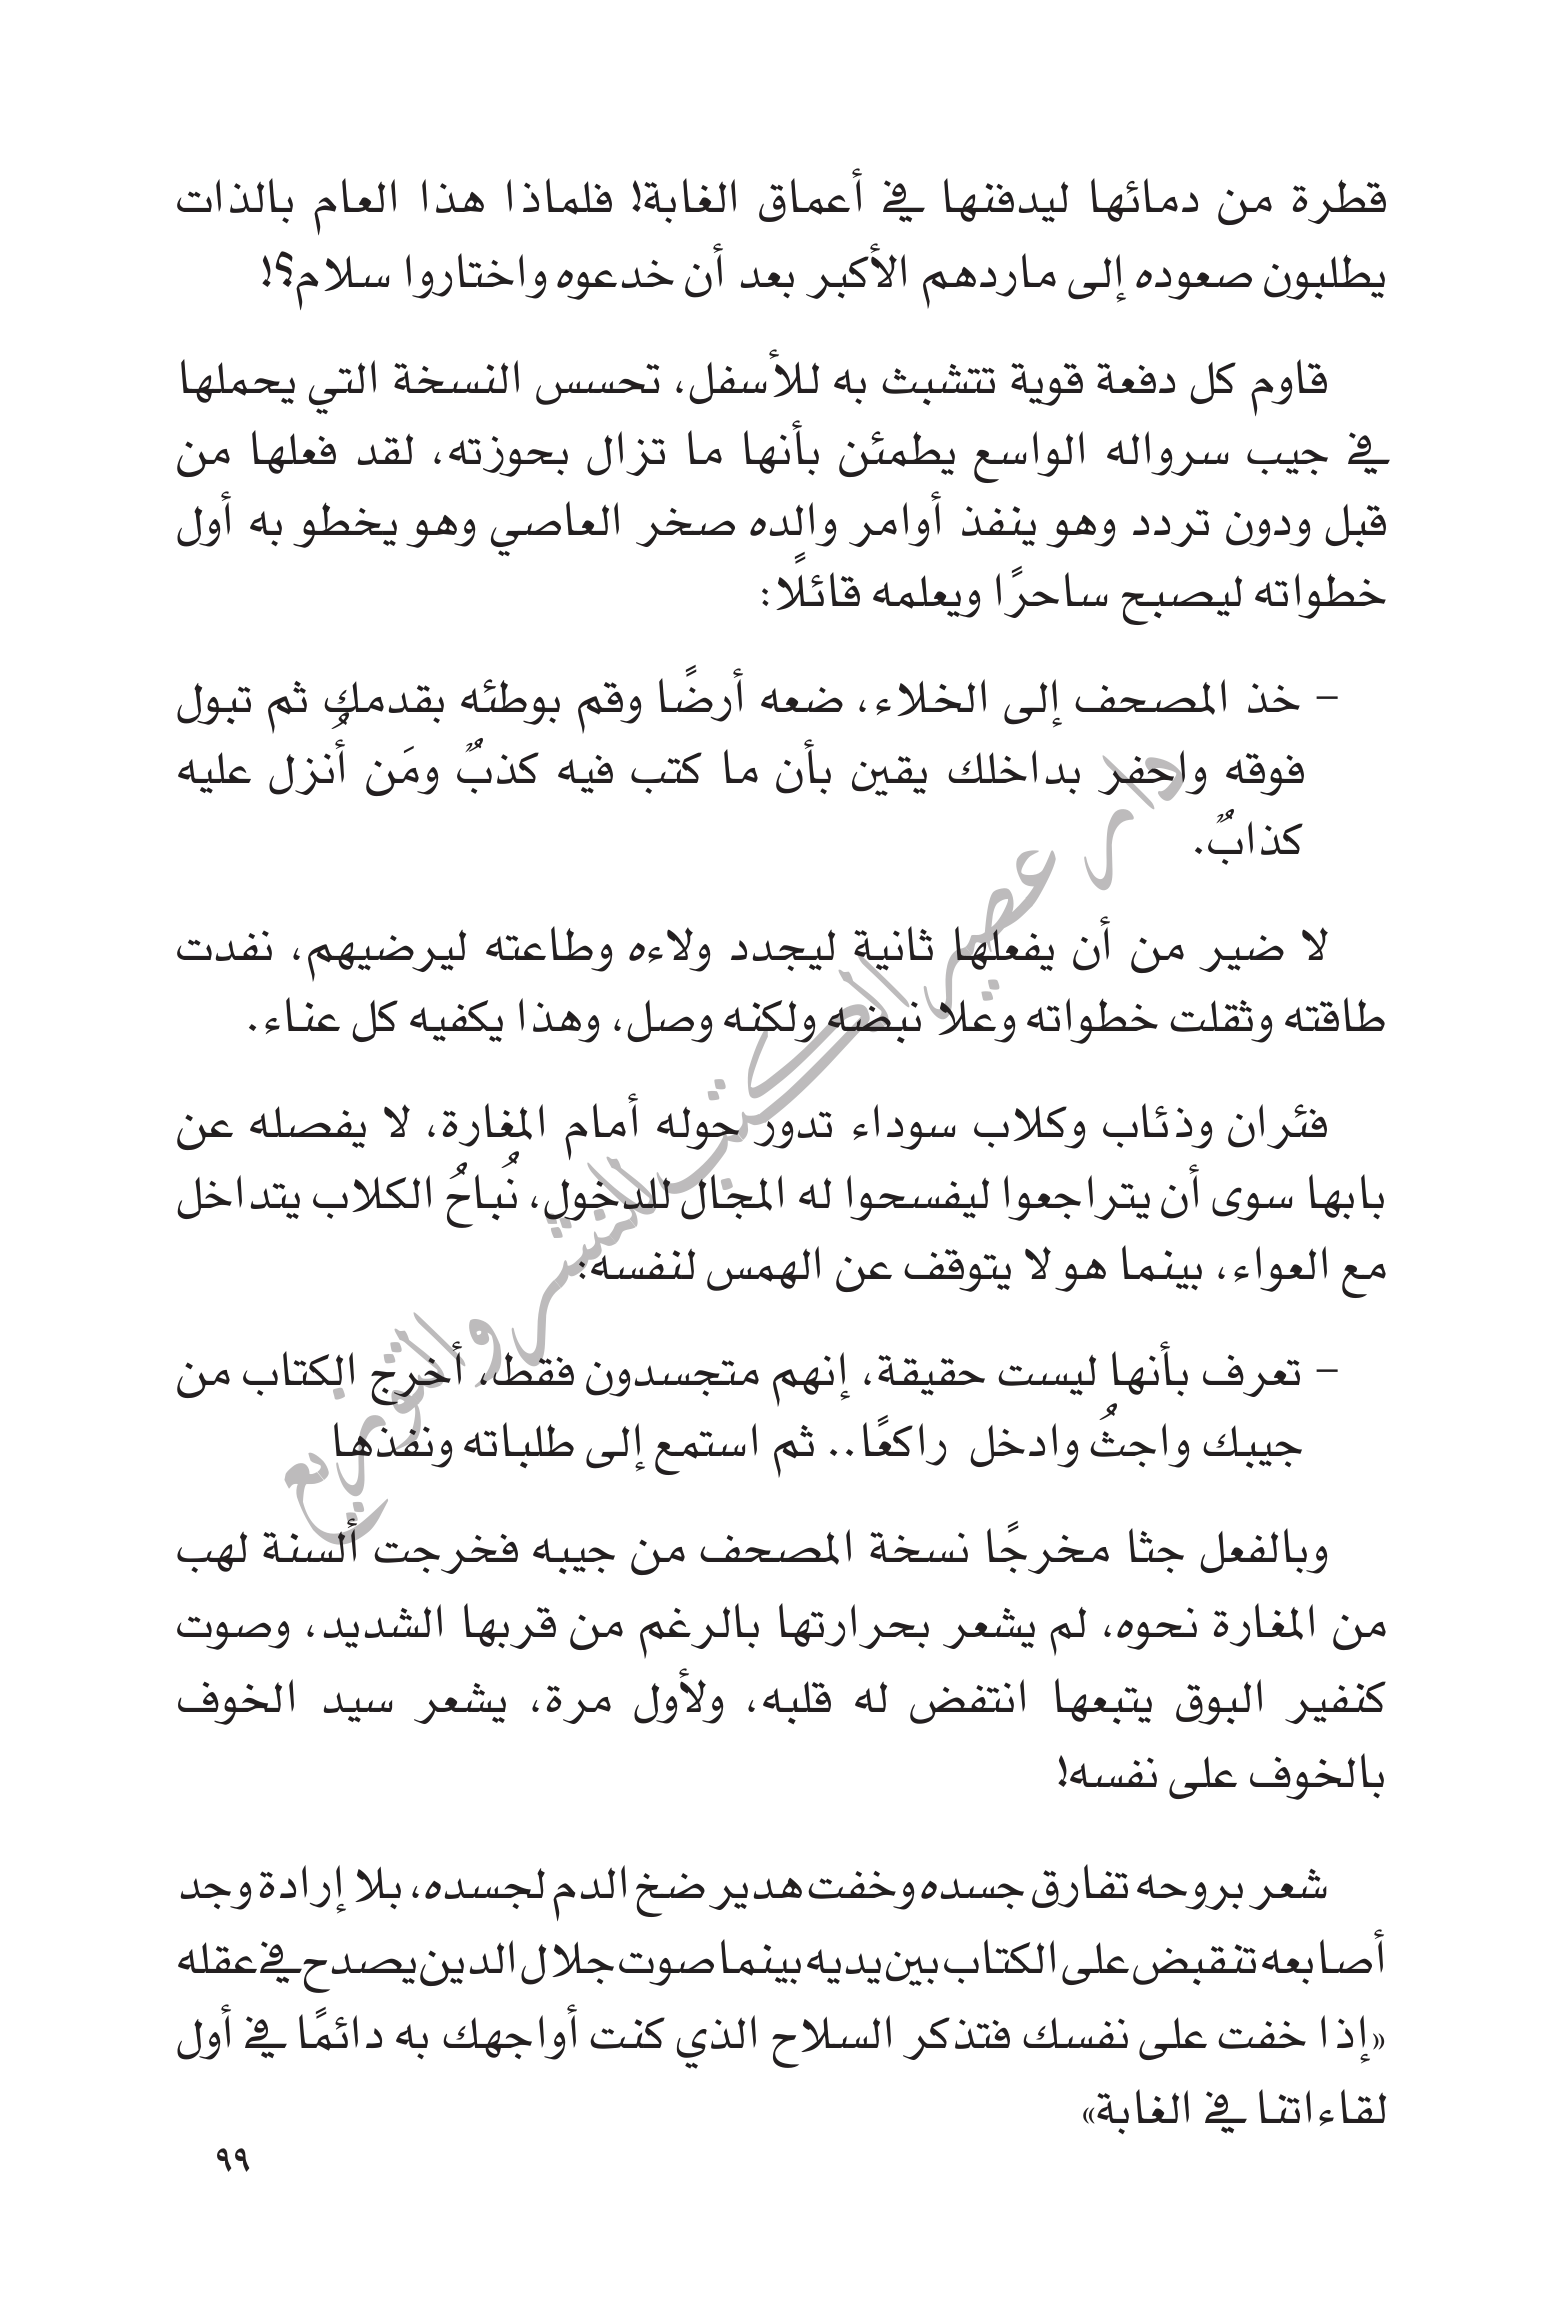 قطرة من دمائها ليدفنها في أعماق الغابة! فلماذا هذا العام بالذات
يطلبون صعوده إلى ماردهم الأكبر بعد أن خدعوه واختاروا سلام؟!
قاوم كل دفعة قوية تتشبث به للأسفل، تحسس النسخة التي يحملها
في جيب سرواله الواسع يطمئن بأنها ما تزال بحوزته، لقد فعلها من
قبل ودون تردد وهو ينفذ أوامر والده صخر العاصي وهو يخطو به أول
خطواته ليصبح ساحرًا ويعلمه قائلًا:
– خذ المصحف إلى الخلاء، ضعه أرضًا وقم بوطئه بقدمك ثم تبول
فوقه واحفر بداخلك يقين بأن ما كتب فيه كذبٌ ومَن أُنزل عليه
كذابٌ.
لا ضير من أن يفعلها ثانية ليجدد ولاءه وطاعته ليرضيهم، نفدت
طاقته وثقلت خطواته وعلا نبضه ولكنه وصل، وهذا يكفيه كل عناء.
فئران وذئاب وكلاب سوداء تدور حوله أمام المغارة، لا يفصله عن
بابها سوى أن يتراجعوا ليفسحوا له المجال للدخول، نُباحُ الكلاب يتداخل
مع العواء، بينما هو لا يتوقف عن الهمس لنفسه:
– تعرف بأنها ليست حقيقة، إنهم متجسدون فقط، أخرج الكتاب من
جيبك واجثُ وادخل راكعًا.. ثم استمع إلى طلباته ونفذها
وبالفعل جثا مخرجًا نسخة المصحف من جيبه فخرجت ألسنة لهب
من المغارة نحوه، لم يشعر بحرارتها بالرغم من قربها الشديد، وصوت
كنفير البوق يتبعها انتفض له قلبه، ولأول مرة، يشعر سيد الخوف
بالخوف على نفسه!
شعر بروحه تفارق جسده وخفت هدير ضخ الدم لجسده، بلا إرادة وجد
أصابعه تنقبض على الكتاب بين يديه بينما صوت جلال الدين يصدح في عقله
«إذا خفت على نفسك فتذكر السلاح الذي كنت أواجهك به دائمًا في أول
لقاءاتنا في الغابة»
٩٩
دار عصير الكتب للنشر والتوزيع